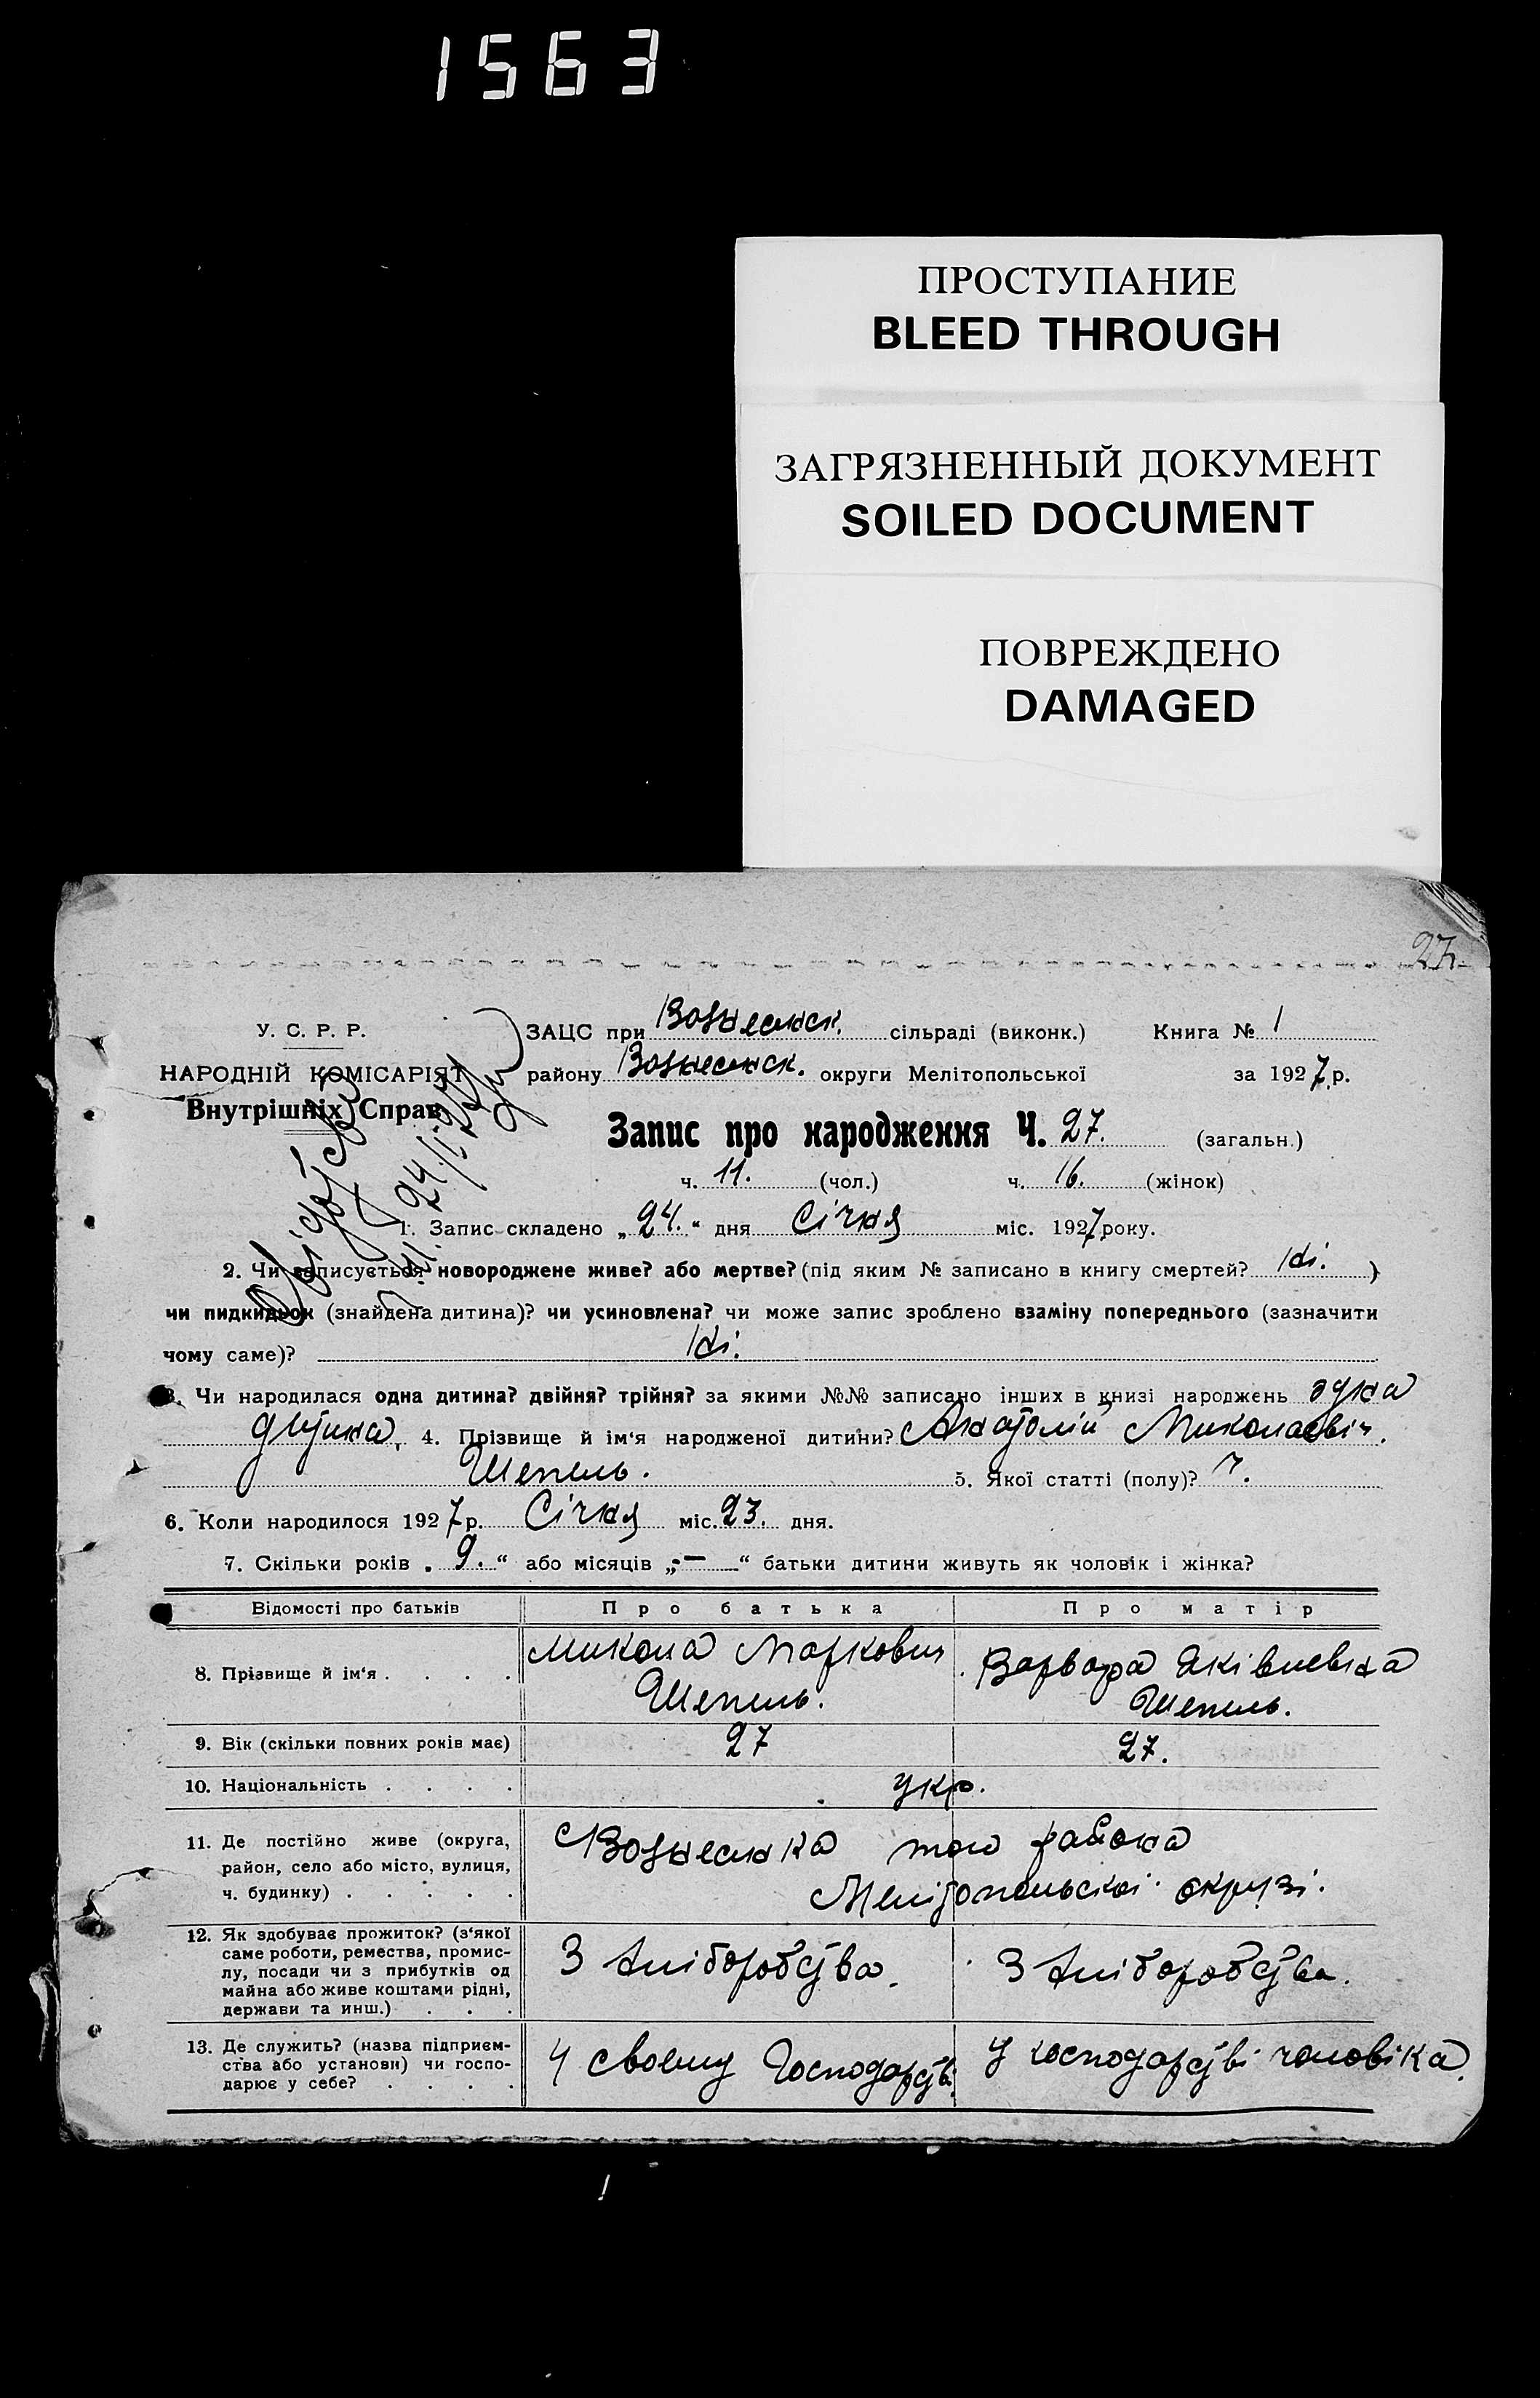 1563
ПРОСТУПАНИЕ
BLEED THROUGH
ЗАГРЯЗНЕННЫЙ ДОКУМЕНТ
SOILED DOCUMENT
ПОВРЕЖДЕНО
DAMAGED
27.
У. С. Р. Р.
НАРОДНІЙ КОМІСАРІЯТ
Внутрішніх Справ
ЗАЦС при Вознесенск. сільраді (виконк.) Книга № 1
району Вознесенск. округи Мелітопольської за 1927 р.
Запис про народження Ч. 27. (загальн.)
ч. 11. (чол.) ч. 16. (жінок)
1. Запис складено „24.“ дня Січня міс. 1927 року.
2. Чи записується новороджене живе? або мертве? (під яким № записано в книгу смертей? Ні. )
чи пидкидьок (знайдена дитина)? чи усиновлена? чи може запис зроблено взаміну попереднього (зазначити
чому саме)? Ні.
3. Чи народилася одна дитина? двійня? трійня? за якими №№ записано інших в книзі народжень одна
дитина, 4. Прізвище й ім'я народженої дитини? Анатолій Миколаєвіч.
Шепель. 5. Якої статті (полу)? Ч.
6. Коли народилося 1927 р. Січня міс. 23. дня.
7. Скільки років „9.“ або місяців „-“ батьки дитини живуть як чоловік і жінка?
Відомості про батьків Про батька Про матір
8. Прізвище й ім'я . . . . Микола Маркович Шепель. Варвара Яківлевна Шепель.
9. Вік (скільки повних років має) 27 27.
10. Національність . . . . укр.
11. Де постійно живе (округа,
район, село або місто, вулиця,
ч. будинку) . . . . .
Вознесенка того района
Мелітопольскої окрузі.
12. Як здобуває прожиток? (з'якої
саме роботи, ремества, промис-
лу, посади чи з прибутків од
майна або живе коштами рідні,
держави та инш.) . . .
З хліборобства. З хліборобства.
13. Де служить? (назва підприєм-
ства або установи) чи госпо-
дарює у себе? . . . .
У своєму господарстві. У господарстві чоловіка.